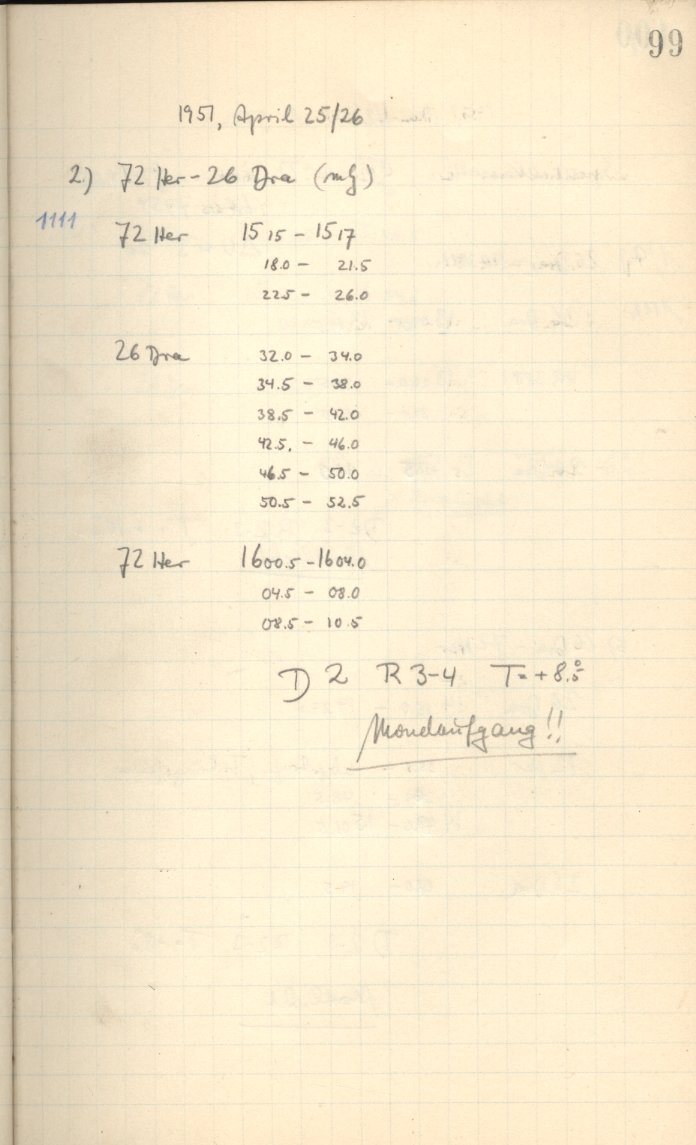 99
1951, April 25/26
2.) 72 Her - 26 Dra
1111
72 Her 15 15 - 15 17
18.0 - 21.5
22.5 - 26.0
26 Dra 32.0 - 34.0
34.5 - 38.0
38.5 - 42.0
42.5. - 46.0
46.5 - 50.0
50.5 - 52.5
72 Her 16 00.5 - 16 04.0
04.5 - 08.0
08.5 - 10.5
D 2 R 3-4 T = + 8.°5
Mondaufgang!!